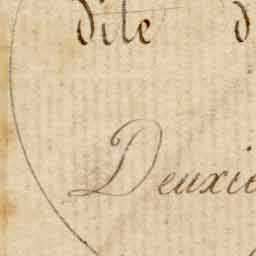 dite d
Deuxie